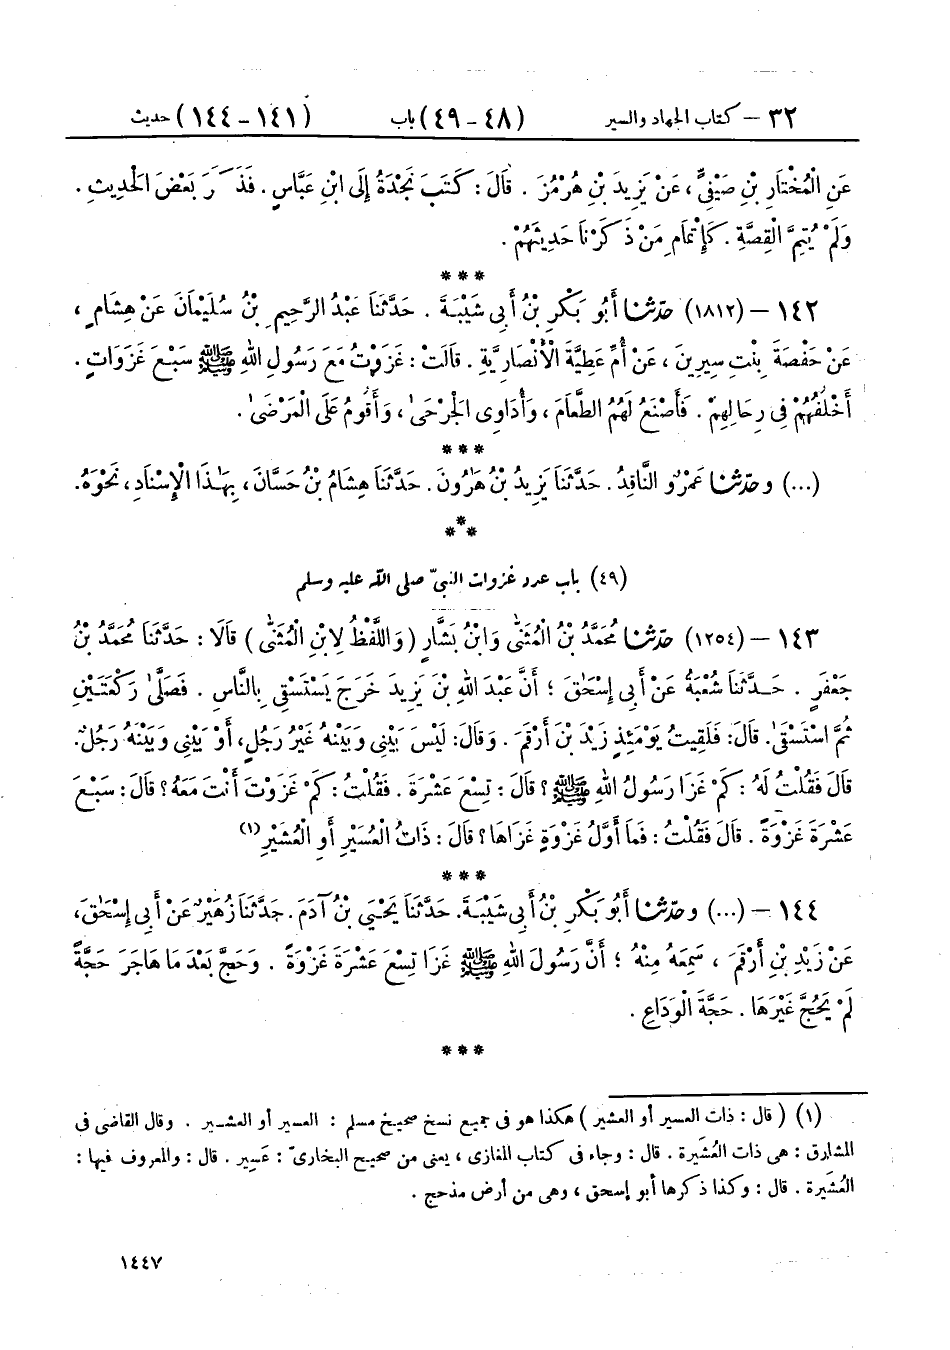 ٣٢ – كتاب الجهاد والسير (٤٨ – ٤٩) باب (١٤١ – ١٤٤) حديث
عَنِ الْمُخْتَارِ بْنِ صَيْفِيٍّ، عَنْ يَزِيدَ بْنِ هُرْمُزَ . قَالَ : كَتَبَ نَجْدَةُ إِلَى ابْنِ عَبَّاسٍ . فَذَكَرَ بَعْضَ الْحَدِيثِ .
وَلَمْ يُتِمَّ الْقِصَّةِ . كَإِتْمَامِ مَنْ ذَكَرْنَا حَدِيثَهُمْ .
***
١٤٢ – (١٨١٢) حدّثنا أَبُو بَكْرِ بْنُ أَبِي شَيْبَةَ . حَدَّثَنَا عَبْدُ الرَّحِيمِ بْنُ سُلَيْمَانَ عَنْ هِشَامٍ ،
عَنْ حَفْصَةَ بِنْتِ سِيرِينَ ، عَنْ أُمِّ عَطِيَّةَ الْأَنْصَارِيَّةِ . قَالَتْ : غَزَوْتُ مَعَ رَسُولِ اللهِ ﷺ سَبْعَ غَزَوَاتٍ .
أَخْلُفُهُمْ فِي رِحَالِهِمْ . فَأَصْنَعُ لَهُمُ الطَّعَامَ ، وَأُدَاوِي الْجَرْحَىٰ ، وَأَقُومُ عَلَى الْمَرْضَىٰ .
***
(...) وحدّثنا عَمْرٌو النَّاقِدُ . حَدَّثَنَا يَزِيدُ بْنُ هَارُونَ . حَدَّثَنَا هِشَامُ بْنُ حَسَّانَ ، بِهَٰذَا الْإِسْنَادِ ، نَحْوَهُ.
***
(٤٩) باب عدد غزوات النبيّ صلى الله عليه وسلم
١٤٣ – (١٢٥٤) حدّثنا مُحَمَّدُ بْنُ الْمُثَنَّىٰ وَابْنُ بَشَّارٍ (وَاللَّفْظُ لِابْنِ الْمُثَنَّىٰ) قَالَا : حَدَّثَنَا مُحَمَّدُ بْنُ
جَعْفَرٍ . حَدَّثَنَا شُعْبَةُ عَنْ أَبِي إِسْحَٰقَ ؛ أَنَّ عَبْدَ اللهِ بْنَ يَزِيدَ خَرَجَ يَسْتَسْقِي بِالنَّاسِ . فَصَلَّىٰ رَكْعَتَيْنِ
ثُمَّ اسْتَسْقَىٰ. قَالَ: فَلَقِيتُ يَوْمَئِذٍ زَيْدَ بْنَ أَرْقَمَ . وَقَالَ: لَيْسَ بَيْنِي وَبَيْنَهُ غَيْرُ رَجُلٍ، أَوْ بَيْنِي وَبَيْنَهُ رَجُلٌ.
قَالَ فَقُلْتُ لَهُ : كَمْ غَزَا رَسُولُ اللهِ ﷺ ؟ قَالَ : تِسْعَ عَشْرَةَ . فَقُلْتُ : كَمْ غَزَوْتَ أَنْتَ مَعَهُ ؟ قَالَ : سَبْعَ
عَشْرَةَ غَزْوَةً . قَالَ فَقُلْتُ : فَمَا أَوَّلُ غَزْوَةٍ غَزَاهَا ؟ قَالَ : ذَاتُ الْعُسَيْرِ أَوِ الْعُشَيْرِ (١)
***
١٤٤ – (...) وحدّثنا أَبُو بَكْرِ بْنُ أَبِي شَيْبَةَ. حَدَّثَنَا يَحْيَى بْنُ آدَمَ. حَدَّثَنَا زُهَيْرٌ عَنْ أَبِي إِسْحَٰقَ،
عَنْ زَيْدِ بْنِ أَرْقَمَ ، سَمِعَهُ مِنْهُ ؛ أَنَّ رَسُولَ اللهِ ﷺ غَزَا تِسْعَ عَشْرَةَ غَزْوَةً . وَحَجَّ بَعْدَ مَا هَاجَرَ حَجَّةً
لَمْ يَحُجَّ غَيْرَهَا . حَجَّةَ الْوَدَاعِ .
***
(١) (قال : ذات العسير أو العشير) هكذا هو في جميع نسخ صحيح مسلم : العسير أو العشير . وقال القاضي في
المشارق : هي ذات العُشَيرة . قال : وجاء في كتاب المغازي ، يعني من صحيح البخاريّ : عَسِير . قال : والمعروف فيها :
العُشَيرة . قال : وكذا ذكرها أبو إسحق ، وهي من أرض مذحج .
١٤٤٧